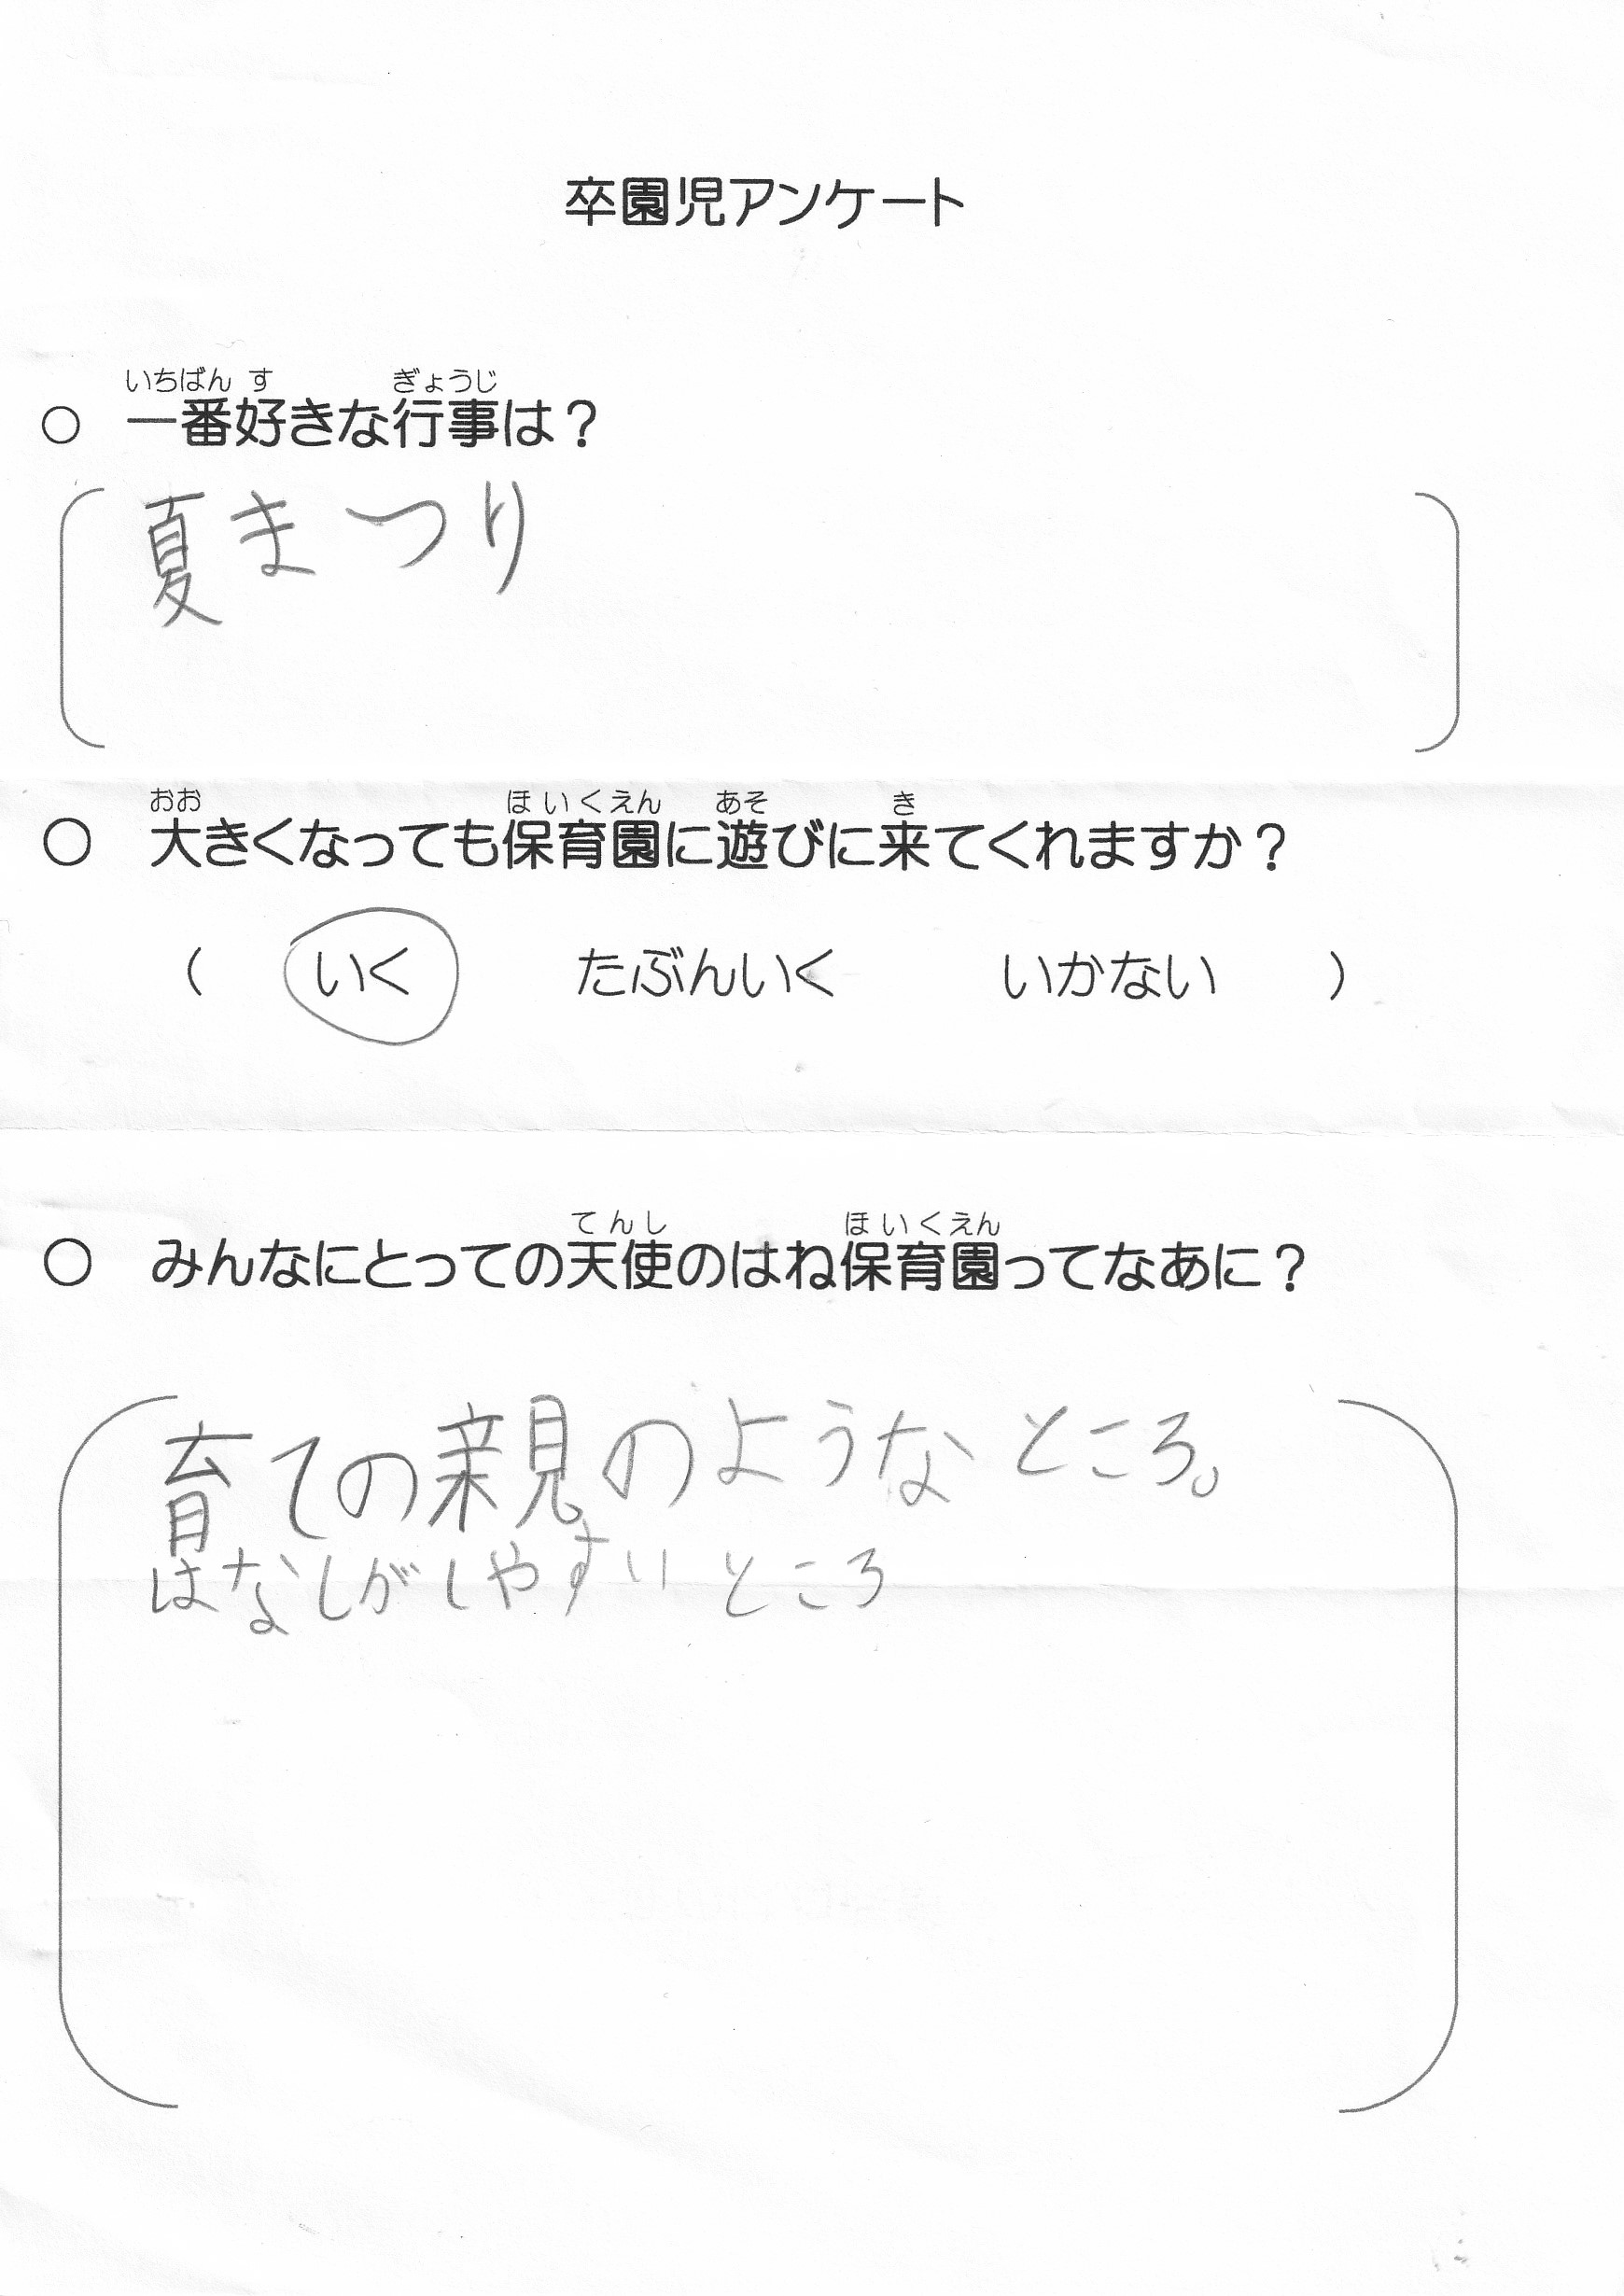 卒園児アンケート
いちばん す ぎょうじ
○ 一番好きな行事は？
夏まつり
おお ほいくえん あそ き
○ 大きくなっても保育園に遊びに来てくれますか？
( いく たぶんいく いかない )
てんし ほいくえん
○ みんなにとっての天使のはね保育園ってなあに？
育ての親のようなところ。
はなしがしやすいところ